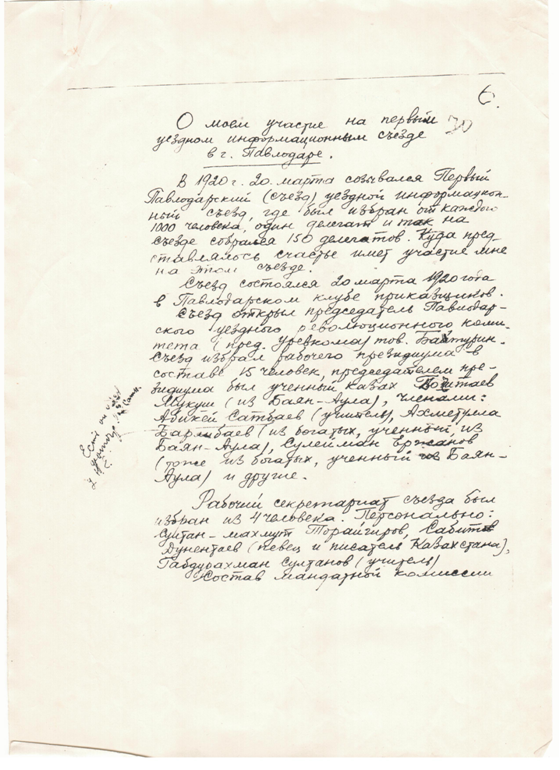 6.
О моем участие на первый
уездном информационным съезде
в г. Павлодаре.
В 1920 г. 20 марта созывался Первый
Павлодарский (съезд) уездной информацион-
ный съезд, где был избран от каждого
1000 человека, один делегат и так на
съезде собрался 150 делегатов. Куда пред-
ставлялось счастье имет участие мне
на этом съезде.
Съезд состоялся 20 марта 1920 года
в Павлодарском клубе приказщиков.
Съезд открыл председатель Павлодар-
ского уездного революционного коми-
тета (пред. Уревкома) тов. Батурин.
Съезд избрал рабочего президиума в
составе 15 человек, председателем пре-
зидиума был ученный казах
Мукуш (из Баян-Аула), членами:
Абикей Сатбаев (учитель), Ахметулла
Барлыбаев (из богатых, ученный из
Баян-Аула), Сулейман Ержанов
(тоже из богатых, ученный из Баян-
Аула) и другие.
Рабочий секретариат съезда был
избран из 4 человека. Персонально:
Султан-махмут Торайгиров, Сабит
Дунентаев (певец и писатель Казахстана),
Габдурахман Султанов (учитель)
Состав мандатной комиссии